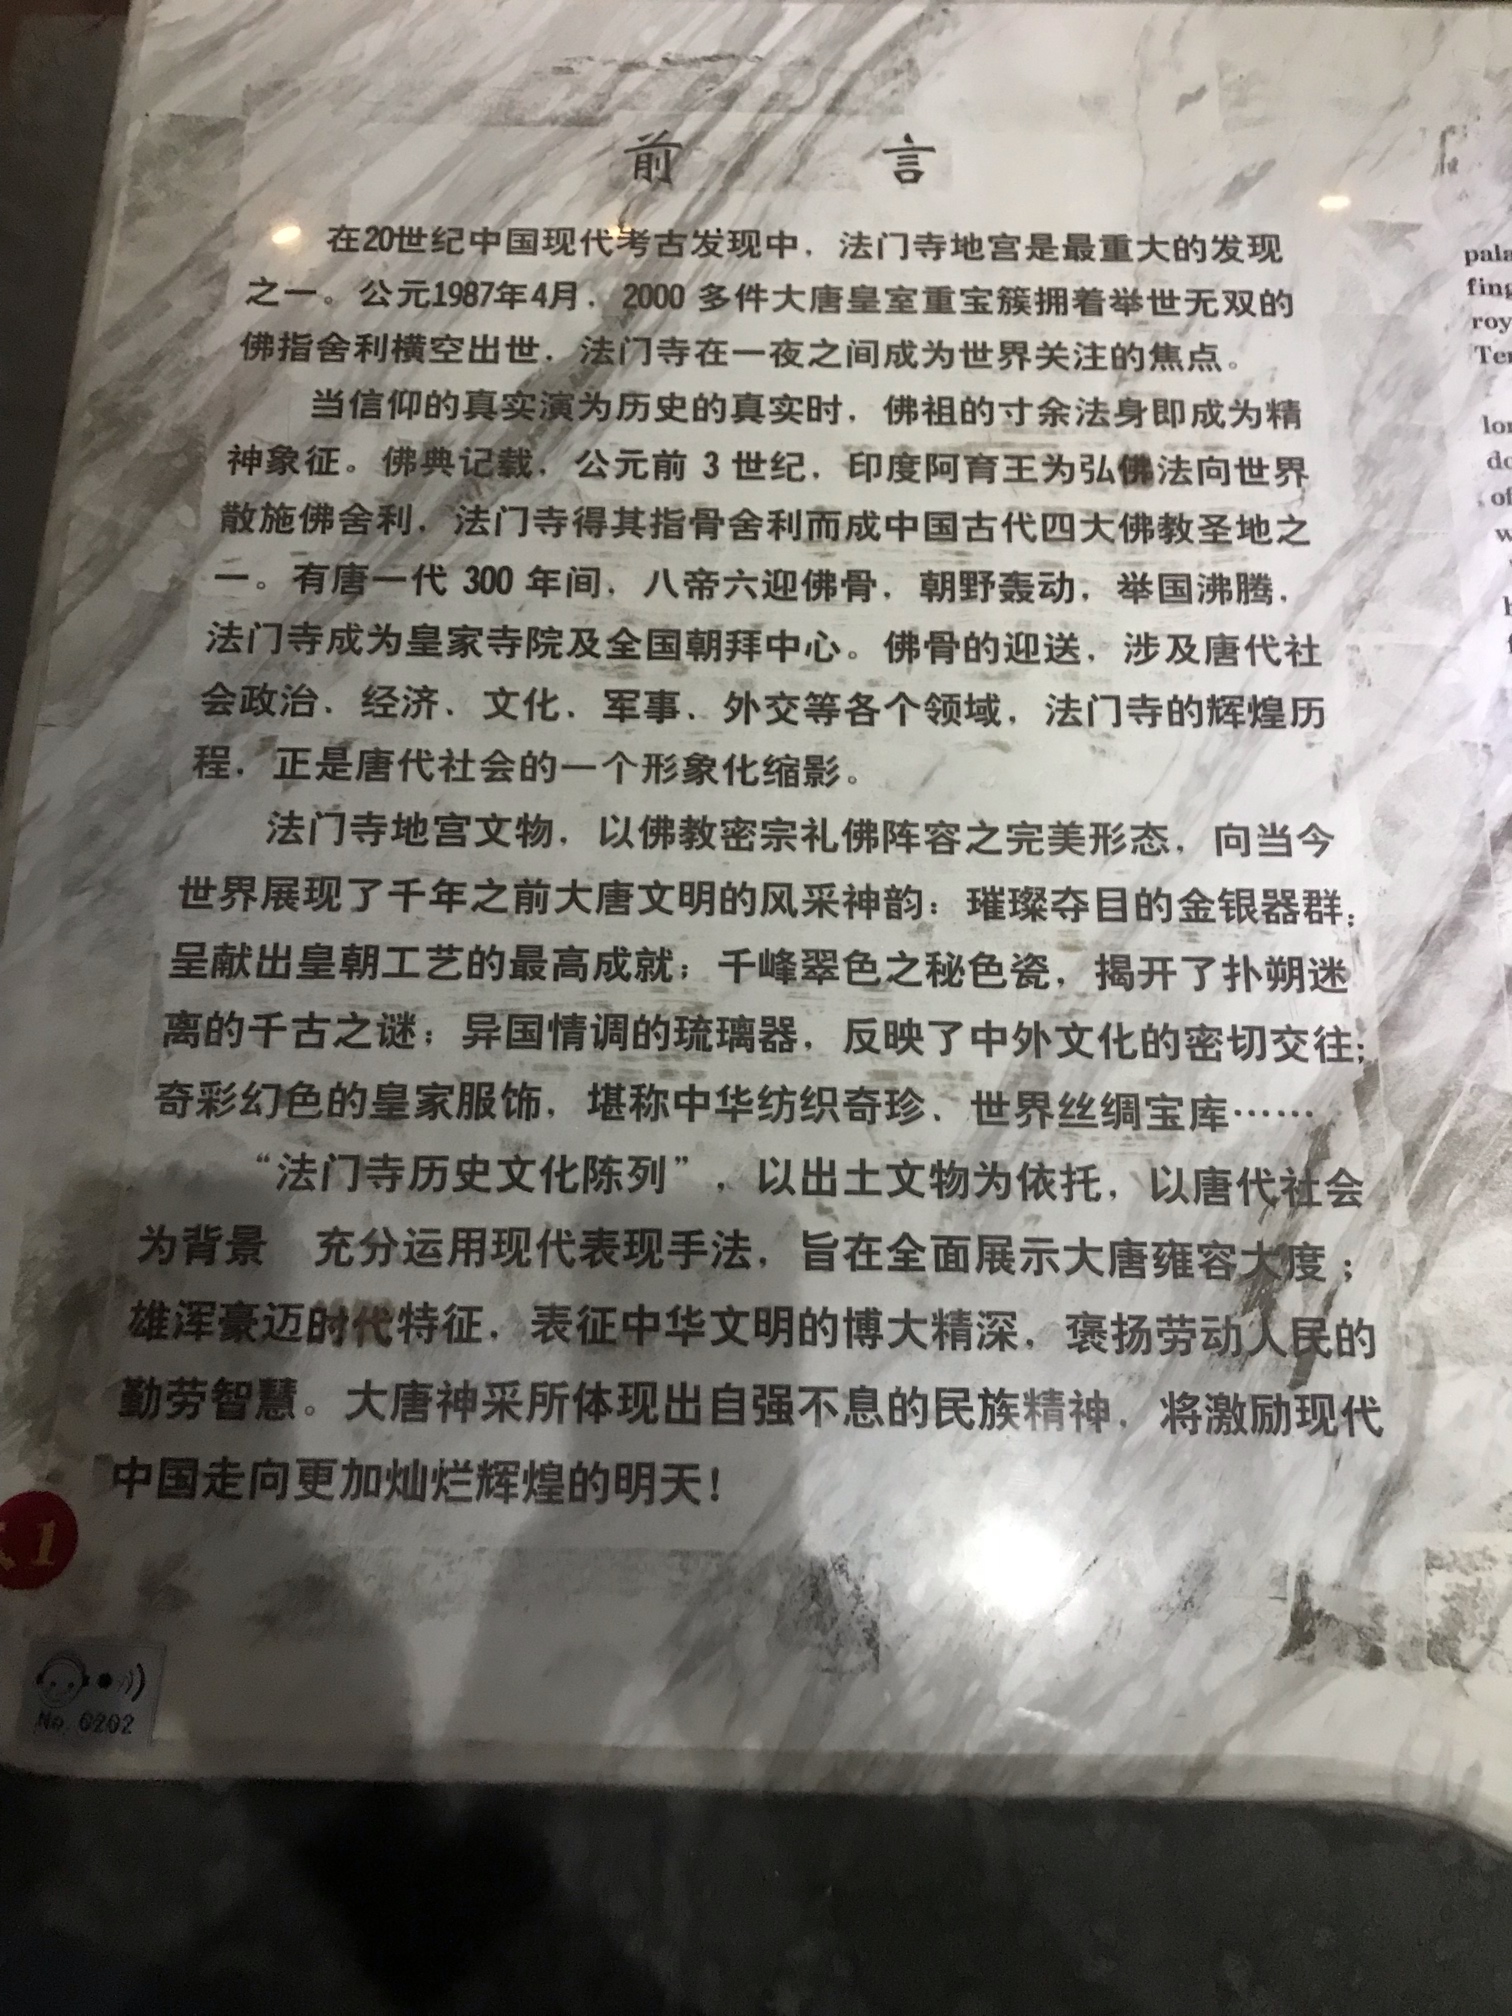 前 言
在20世纪中国现代考古发现中，法门寺地宫是最重大的发现
之一。公元1987年4月，2000 多件大唐皇室重宝簇拥着举世无双的
佛指舍利横空出世，法门寺在一夜之间成为世界关注的焦点。
当信仰的真实演为历史的真实时，佛祖的寸余法身即成为精
神象征。佛典记载，公元前 3 世纪，印度阿育王为弘佛法向世界
散施佛舍利，法门寺得其指骨舍利而成中国古代四大佛教圣地之
一。有唐一代 300 年间，八帝六迎佛骨，朝野轰动，举国沸腾，
法门寺成为皇家寺院及全国朝拜中心。佛骨的迎送，涉及唐代社
会政治、经济、文化、军事、外交等各个领域，法门寺的辉煌历
程，正是唐代社会的一个形象化缩影。
法门寺地宫文物，以佛教密宗礼佛阵容之完美形态，向当今
世界展现了千年之前大唐文明的风采神韵：璀璨夺目的金银器群；
呈献出皇朝工艺的最高成就；千峰翠色之秘色瓷，揭开了扑朔迷
离的千古之谜；异国情调的琉璃器，反映了中外文化的密切交往；
奇彩幻色的皇家服饰，堪称中华纺织奇珍、世界丝绸宝库……
“法门寺历史文化陈列”，以出土文物为依托，以唐代社会
为背景 充分运用现代表现手法，旨在全面展示大唐雍容大度；
雄浑豪迈时代特征，表征中华文明的博大精深，褒扬劳动人民的
勤劳智慧。大唐神采所体现出自强不息的民族精神，将激励现代
中国走向更加灿烂辉煌的明天！
1
No. 0202
pala
fing
roy
Ter
lor
do
of
w